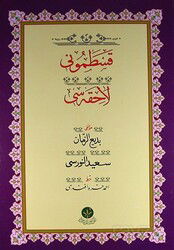 قسطمونی
لاحقه‌سی
مؤلفی
بدیع الزمان
سعید النورسی